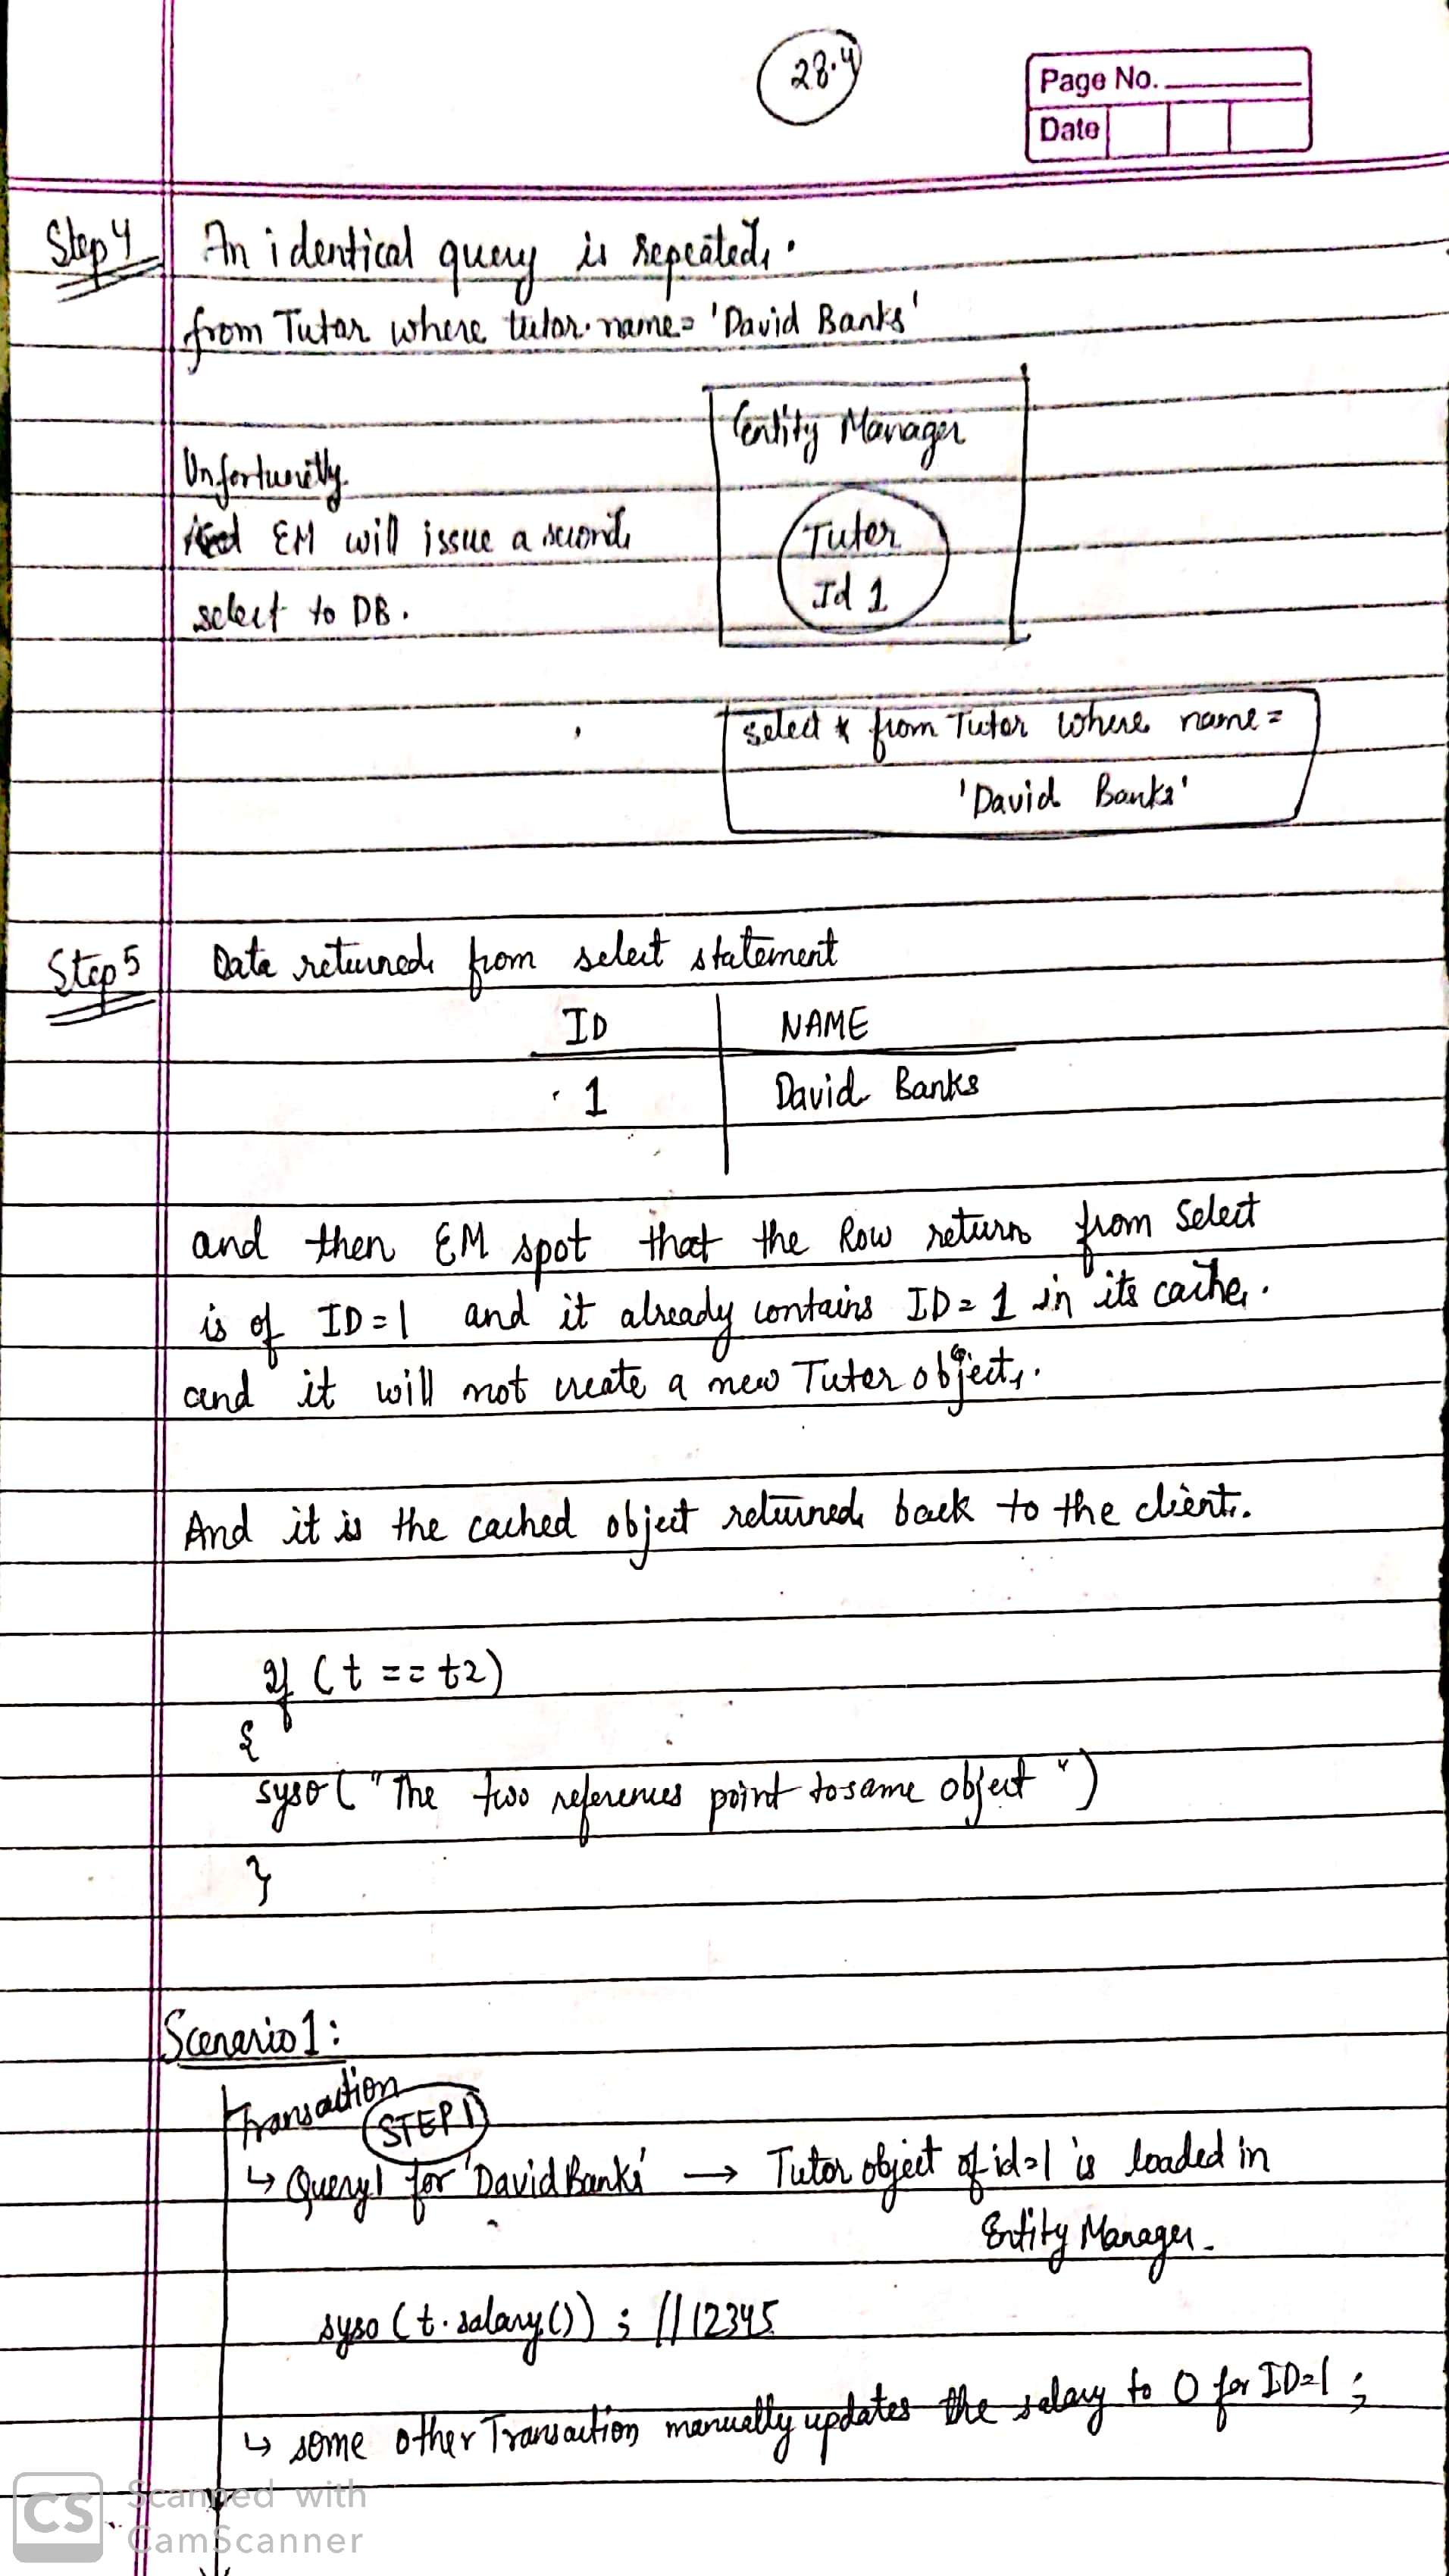 28.4
Page No.
Date
Step 4 An identical query is repeated.
from Tutor where tutor.name = 'David Banks'
Entity Manager
Unfortunitly
EM will issue a second
select to DB.
Tutor
Id 1
select * from Tutor where name =
'David Banks'
Step 5 Data returned from select statement
ID NAME
1 David Banks
and then EM spot that the Row return from Select
is of ID = 1 and it already contains ID = 1 in its cache.
and it will not create a new Tutor object.
And it is the cached object returned back to the client.
If (t == t2)
{
syso ("The two references point to same object")
}
Scenario 1:
Transaction
STEP 1
↳ Query 1 for 'David Banks' → Tutor object of id=1 is loaded in
Entity Manager.
syso (t.salary()); // 12345
↳ some other Transaction manually updates the salary to 0 for ID=1;
CS Scanned with
CamScanner